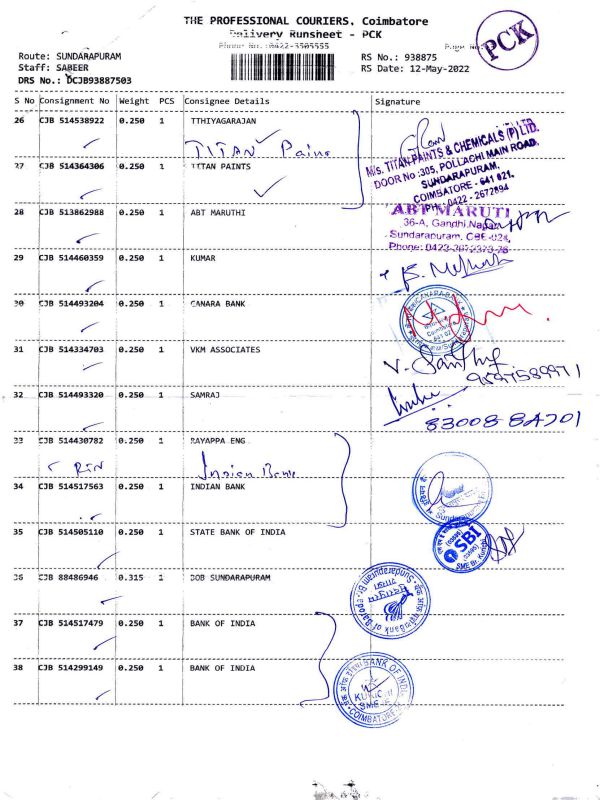 THE PROFESSIONAL COURIERS, Coimbatore
Delivery Runsheet - PCK
Phone No.:0422-3505555
PCK
Route: SUNDARAPURAM RS No.: 938875
Staff: SABEER RS Date: 12-May-2022
DRS No.: DCJB93887503
S No Consignment No Weight PCS Consignee Details Signature
26 CJB 514538922 0.250 1 TTHIYAGARAJAN
TITAN Paint
M/s. TITAN PAINTS & CHEMICALS (P) LTD.
DOOR No :305, POLLACHI MAIN ROAD,
SUNDARAPURAM,
COIMBATORE - 641 021.
PH: 0422 - 2672894
27 CJB 514364306 0.250 1 TITAN PAINTS
28 CJB 513862988 0.250 1 ABT MARUTHI
ABT MARUTI
36-A, Gandhi Nagar,
Sundarapuram, CBE-024,
29 CJB 514460359 0.250 1 KUMAR
30 CJB 514493204 0.250 1 CANARA BANK
CANARA BANK
31 CJB 514334703 0.250 1 VKM ASSOCIATES
9597589971
32 CJB 514493320 0.250 1 SAMRAJ
83008 84201
33 CJB 514430782 0.250 1 RAYAPPA ENG
Indian Bank
34 CJB 514517563 0.250 1 INDIAN BANK
35 CJB 514505110 0.250 1 STATE BANK OF INDIA
SBI
36 CJB 88486946 0.315 1 BOB SUNDARAPURAM
Bank of Baroda
Sundarapuram Br.
37 CJB 514517479 0.250 1 BANK OF INDIA
38 CJB 514299149 0.250 1 BANK OF INDIA
BANK OF INDIA
COIMBATORE